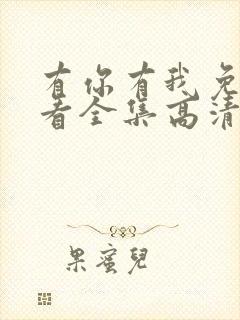 有你有我免
看全集高清
果蜜兒